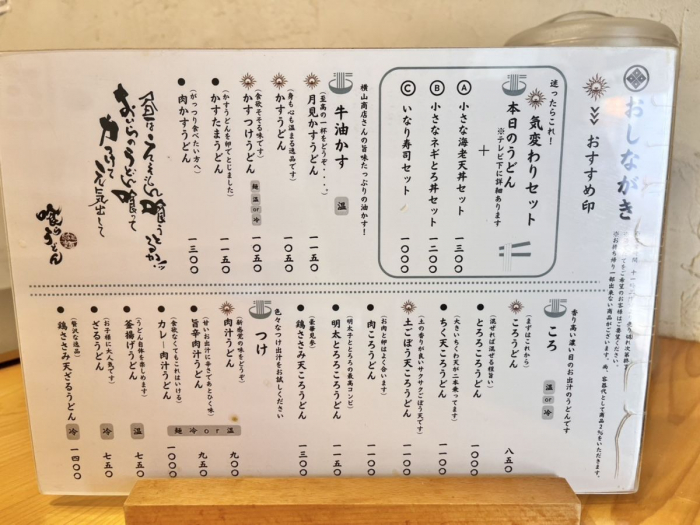 おしながき
おすすめ印
迷ったらこれ！
気変わりセット
本日のうどん
※テレビ下に詳細あります
＋
Ⓐ 小さな海老天丼セット 一三〇〇
Ⓑ 小さなネギとろ丼セット 一二〇〇
Ⓒ いなり寿司セット 一〇〇〇
横山商店さんの旨味たっぷりの油かす！
牛油かす 温
（至高の一杯をどうぞ・・・）
月見かすうどん 一一五〇
（身も心も温まる逸品です）
かすうどん 一〇五〇
（食欲そそる味です）
かすつけうどん 麺 温 or 冷 一〇五〇
（かすうどんを卵でとじました）
かすたまうどん 一一五〇
（がっつり食べたい方へ）
肉かすうどん 一三〇〇
喰のうどん
香り高い濃い目のお出汁のうどんです
ころ 温 or 冷
（まずはこれから）
ころうどん 八五〇
（混ぜれば混ぜる程旨い）
とろころうどん 一〇〇〇
（大きいちくわ天が二本乗ってます）
ちく天ころうどん 一一〇〇
（土の香りが良いサクサクごぼう天です）
土ごぼう天ころうどん 一一〇〇
（お肉と卵はよく合います）
肉ころうどん 一一〇〇
（明太子ととろろの最高コンビ）
明太とろろころうどん 一一五〇
（豪華乱参）
鶏ささみ天ころうどん 一三〇〇
色々なつけ出汁をお試しください
つけ
（新感覚の味をどうぞ）
肉汁うどん 九〇〇
（甘いお出汁に辛さであとひく味）
旨辛肉汁うどん 九五〇
（食欲なくてもこれはいける）
カレー肉汁うどん 一〇〇〇
麺 冷 or 温
（うどん自体を楽しめます）
釜揚げうどん 温 七五〇
（お子様に大人気です）
ざるうどん 冷 七五〇
（贅沢な逸品）
鶏ささみ天ざるうどん 冷 一四〇〇